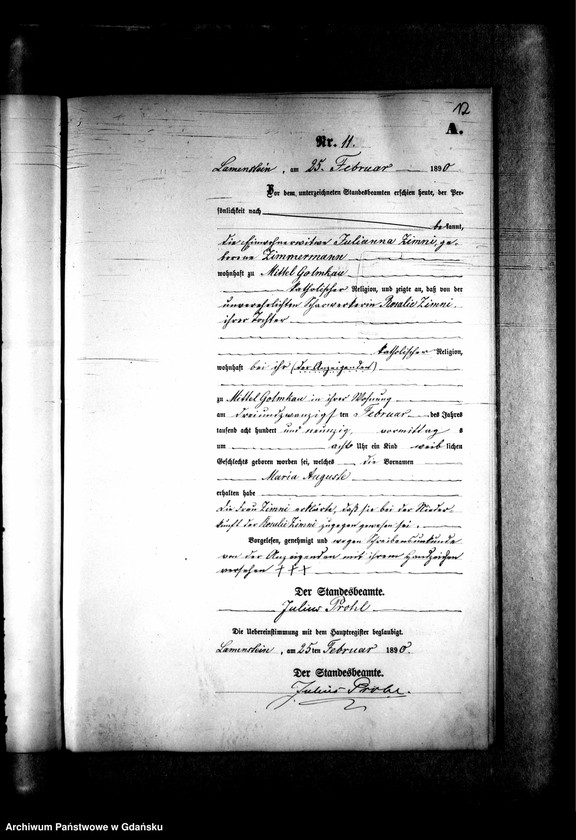 12
A.
Nr. 11.
Lamenstein, am 25. Februar 1890
Vor dem unterzeichneten Standesbeamten erschien heute, der Per-
sönlichkeit nach
bekannt,
die Einwohnerwitwe Julianna Zimni, ge-
borene Zimmermann
wohnhaft zu Mittel Golmkau
katholischer Religion, und zeigte an, daß von der
unverehelichten Scharwerkerin Rosalie Zimni
ihrer Tochter
katholischer Religion,
wohnhaft bei ihr (der Anzeigenden)
zu Mittel Golmkau in ihrer Wohnung
am dreiundzwanzigsten Februar des Jahres
tausend acht hundert und neunzig vormittags
um acht Uhr ein Kind weiblichen
Geschlechts geboren worden sei, welches die Vornamen
Maria Auguste
erhalten habe
Die Frau Zimni erklärte, daß sie bei der Nieder
kunft der Rosalie Zimni zugegen gewesen sei.
Vorgelesen, genehmigt und wegen Schreibensunkunde
von der Anzeigenden mit ihrem Handzeichen
versehen +++
Der Standesbeamte.
Julius Prohl
Die Uebereinstimmung mit dem Hauptregister beglaubigt.
Lamenstein, am 25ten Februar 1890.
Der Standesbeamte.
Julius Prohl.
Archiwum Państwowe w Gdańsku